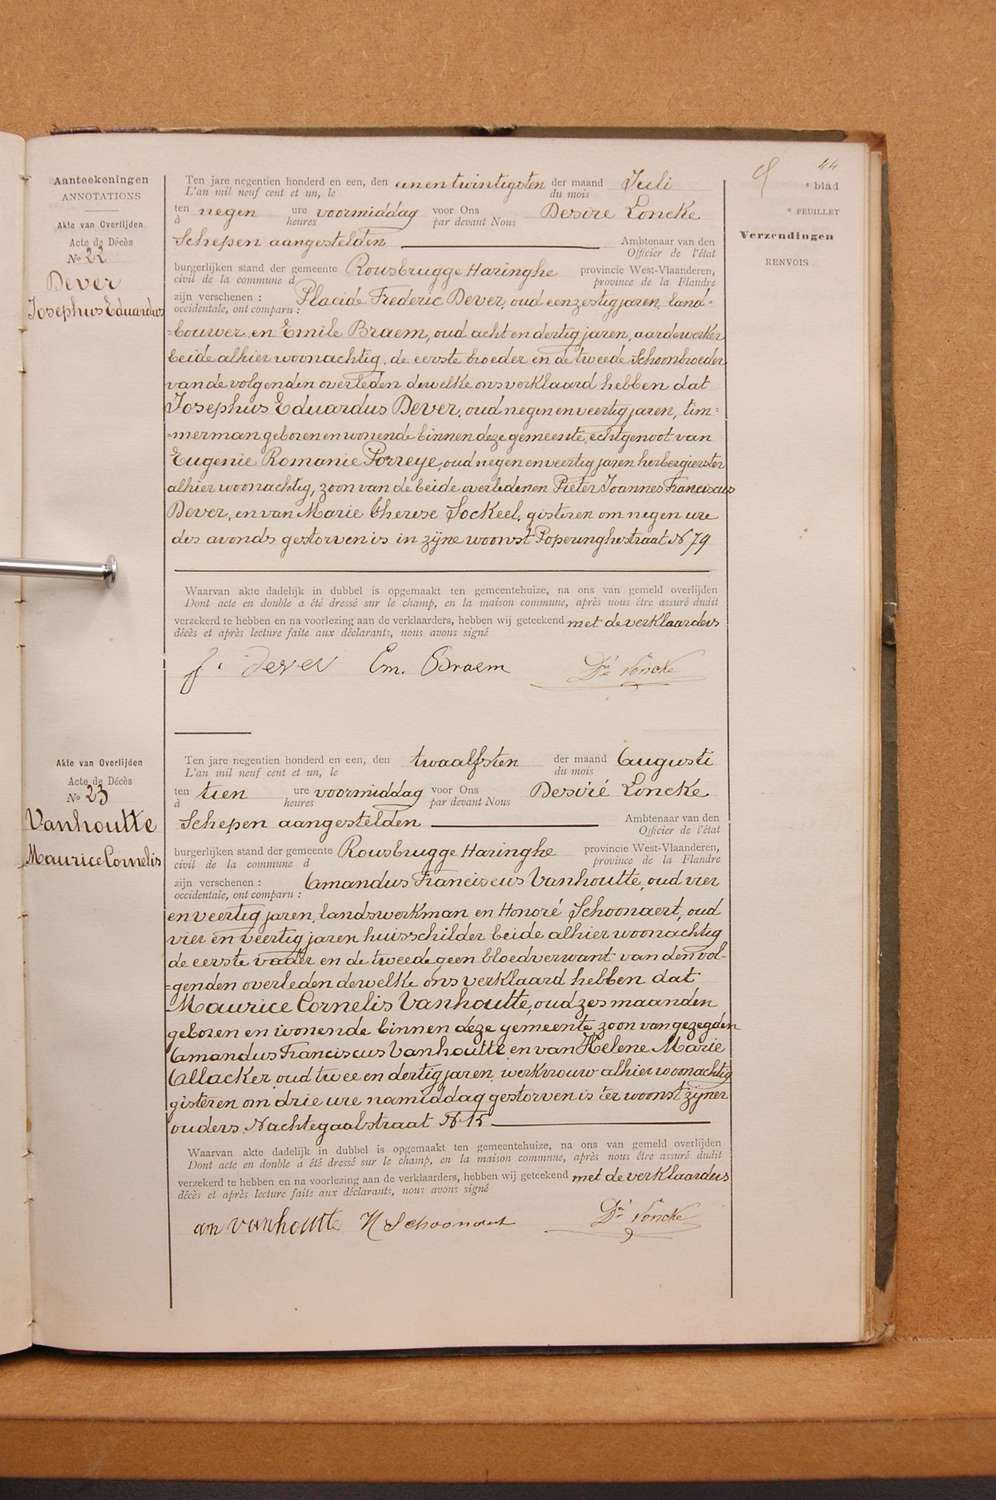 44
* blad
* FEUILLET
Verzendingen
RENVOIS
Aanteekeningen
ANNOTATIONS
Akte van Overlijden
Acte de Décès
No 22
Dever
Josephus Eduardus
Ten jare negentien honderd en een, den eenentwintigsten der maand Juli
L'an mil neuf cent et un, le du mois
ten negen ure voormiddag voor Ons Desiré Loncke
à heures par devant Nous
Schepen aangestelden Ambtenaar van den
Officier de l'état
burgerlijken stand der gemeente Rousbrugge Haringhe provincie West-Vlaanderen,
civil de la commune d province de la Flandre
zijn verschenen : Placide Frederic Dever, oud eenzestig jaren, land-
occidentale, ont comparu :
=bouwer, en Emile Braem, oud acht en dertig jaren, aardewerker
beide alhier woonachtig, de eerste broeder en de tweede Schoonbroeder
van de volgenden overleden dewelke ons verklaard hebben dat
Josephus Eduardus Dever, oud negen en veertig jaren, tim=
=merman geboren en wonende binnen deze gemeente, echtgenoot van
Eugenie Romanie Porreye, oud negen en veertig jaren herbergierster
alhier woonachtig, zoon van de beide overledenen Pieter Joannes Franciscus
Dever, en van Marie Therese Jockeel, gisteren om negen ure
des avonds gestorven is in zijne woonst Poperinghestraat No 79
Waarvan akte dadelijk in dubbel is opgemaakt ten gemeentehuize, na ons van gemeld overlijden
Dont acte en double a été dressé sur le champ, en la maison commune, après nous être assuré dudit
verzekerd te hebben en na voorlezing aan de verklaarders, hebben wij geteekend met de verklaarders
décès et après lecture faite aux déclarants, nous avons signé
f. Dever Em. Braem Dré Loncke
Akte van Overlijden
Acte de Décès
No 23
Vanhoutte
Maurice Cornelis
Ten jare negentien honderd en een, den twaalfsten der maand Augusti
L'an mil neuf cent et un, le du mois
ten tien ure voormiddag voor Ons Desiré Loncke
à heures par devant Nous
Schepen aangestelden Ambtenaar van den
Officier de l'état
burgerlijken stand der gemeente Rousbrugge Haringhe provincie West-Vlaanderen,
civil de la commune d province de la Flandre
zijn verschenen : Amandus Franciscus Vanhoutte, oud vier
occidentale, ont comparu :
en veertig jaren, landswerkman en Honoré Schoonaert, oud
vier en veertig jaren huisschilder beide alhier woonachtig
de eerste vader en de tweede geen bloedverwant van den vol-
=genden overleden dewelke ons verklaard hebben dat
Maurice Cornelis Vanhoutte, oud zes maanden
geboren en wonende binnen deze gemeente, zoon van gezegden
Amandus Franciscus Vanhoutte en van Helene Marie
Allacker, oud twee en dertig jaren, werkvrouw alhier woonachtig
gisteren om drie ure namiddag gestorven is ter woonst zijner
ouders, Nachtegaalstraat No 15
Waarvan akte dadelijk in dubbel is opgemaakt ten gemeentehuize, na ons van gemeld overlijden
Dont acte en double a été dressé sur le champ, en la maison commune, après nous être assuré dudit
verzekerd te hebben en na voorlezing aan de verklaarders, hebben wij geteekend met de verklaarders
décès et après lecture faite aux déclarants, nous avons signé
am vanhoutte H Schoonaert Dré Loncke